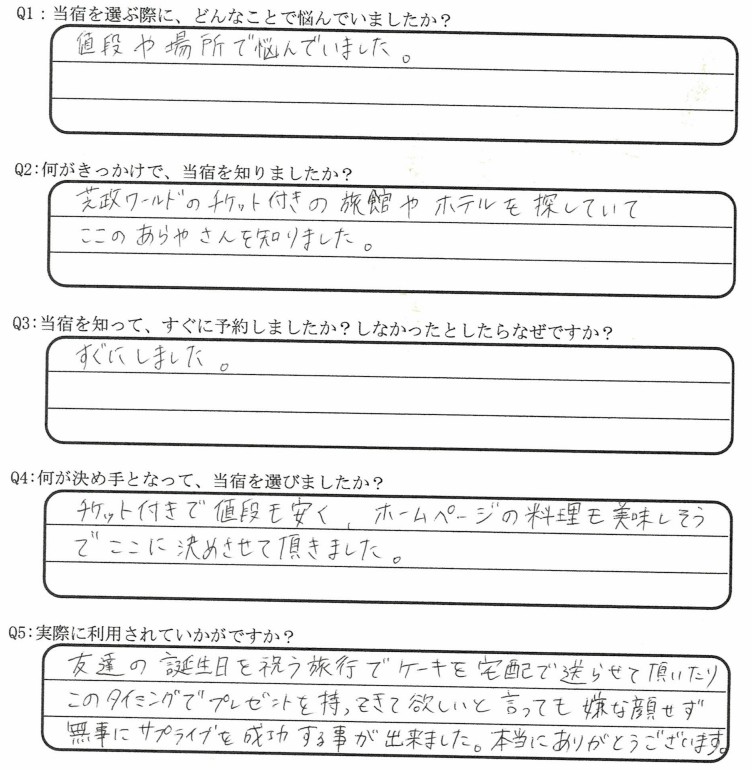 Q1:当宿を選ぶ際に、どんなことで悩んでいましたか?
値段や場所で悩んでいました。
Q2:何がきっかけで、当宿を知りましたか?
芝政ワールドのチケット付きの旅館やホテルを探していて
ここのあらやさんを知りました。
Q3:当宿を知って、すぐに予約しましたか?しなかったとしたらなぜですか?
すぐにしました。
Q4:何が決め手となって、当宿を選びましたか?
チケット付きで値段も安く、ホームページの料理も美味しそう
でここに決めさせて頂きました。
Q5:実際に利用されていかがですか?
友達の誕生日を祝う旅行でケーキを宅配で送らせて頂いたり
このタイミングでプレゼントを持ってきて欲しいと言っても嫌な顔せず
無事にサプライズを成功する事が出来ました。本当にありがとうございます。